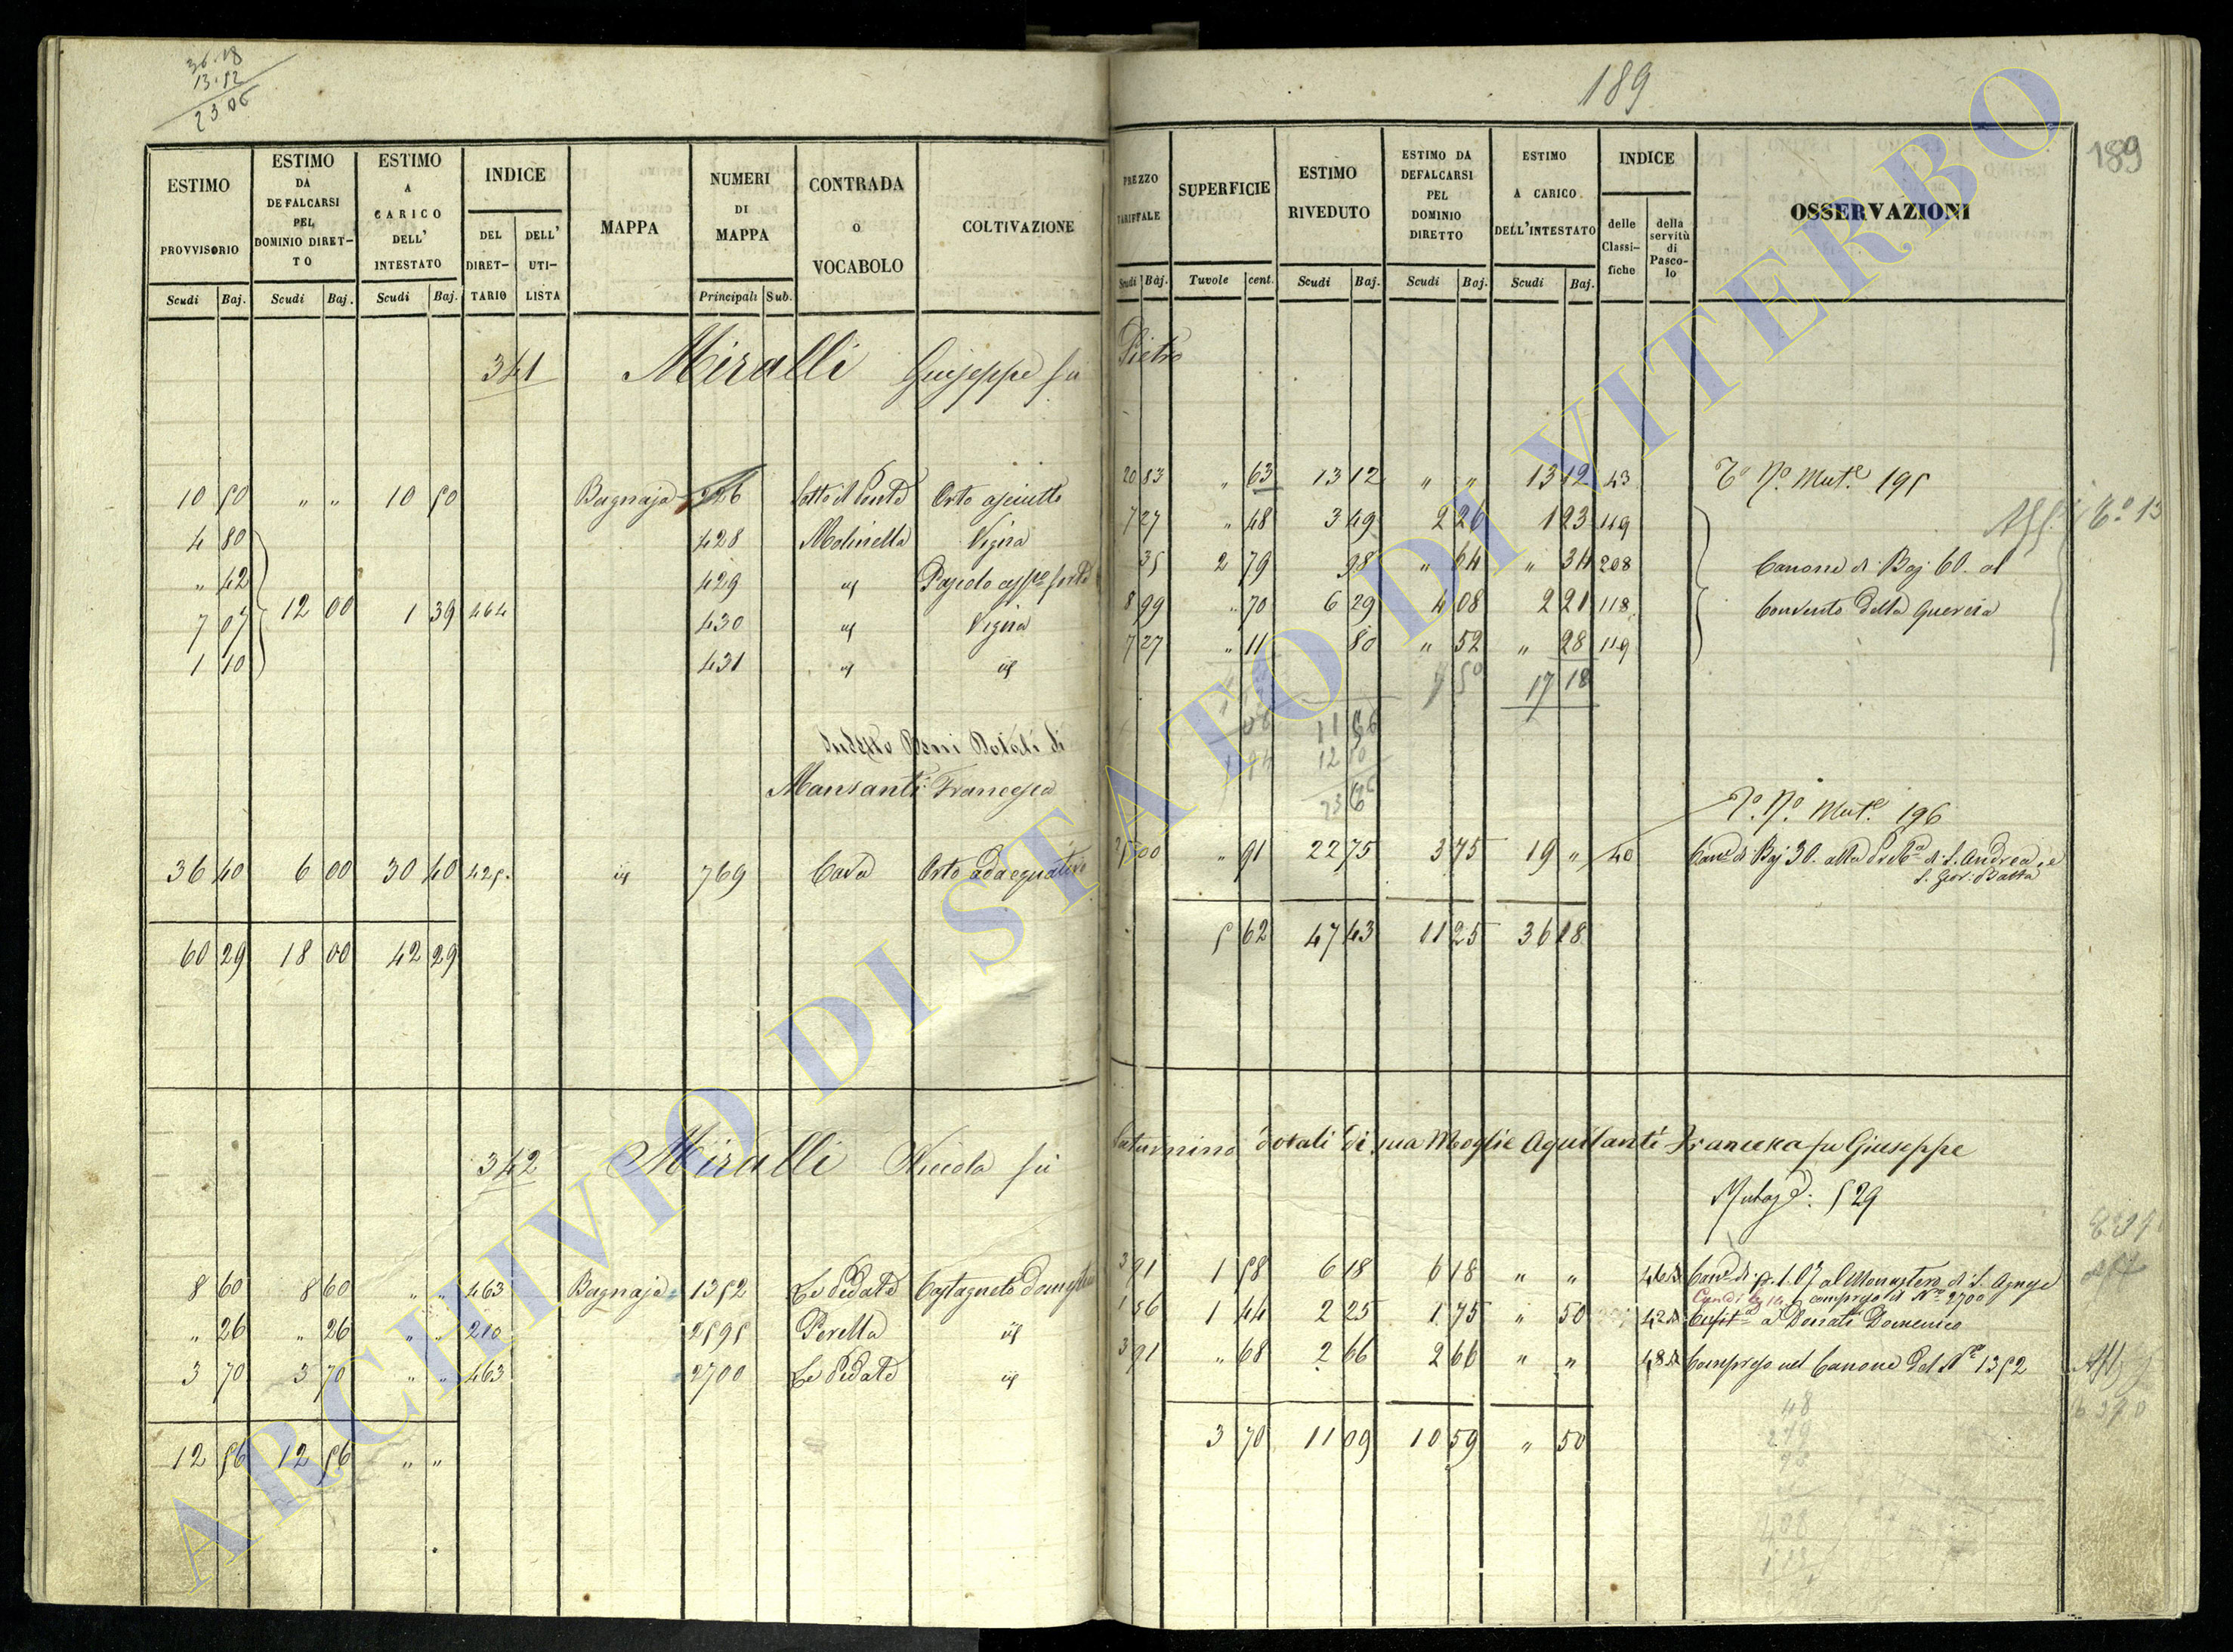 36.18
13.12
23 06
189
189
ESTIMO PROVVISORIO
ESTIMO DA DEFALCARSI PEL DOMINIO DIRET-TO
ESTIMO A CARICO DELL' INTESTATO
INDICE
DEL DIRET-TARIO
DELL' UTI-LISTA
MAPPA
NUMERI DI MAPPA
CONTRADA O VOCABOLO
COLTIVAZIONE
PREZZO TARIFFALE
SUPERFICIE
ESTIMO RIVEDUTO
ESTIMO DA DEFALCARSI PEL DOMINIO DIRETTO
ESTIMO A CARICO DELL'INTESTATO
INDICE
delle Classi-fiche
della servitù di Pasco-lo
OSSERVAZIONI
Scudi Baj. Scudi Baj. Scudi Baj. Principali Sub. Scudi Baj. Tavole cent. Scudi Baj. Scudi Baj. Scudi Baj.
341 Miralli Giuseppe fu Pietro
10 50 " " 10 50 Bagnaja 226 Sotto il Ponte Orto asciutto 20 83 " 63 13 12 " " 13 12 43 To No Mute 195
4 80 428 Molinella Vigna 7 27 " 48 3 49 2 26 1 23 119
" 42 429 id Pascolo 35 2 79 98 " 64 " 34 208 Canone di Baj 60. al
7 07 12 00 1 39 464 430 id Vigna 8 99 " 70 6 29 4 08 2 21 118 Convento della Quercia
1 10 431 id id 7 27 " 11 80 " 52 " 28 119
7 50 17 18
11 56
12 10
Beni Dotali di
Mansanti Francesca
To No Mute 196
36 40 6 00 30 40 425. id 769 Cava Orto adacquativo 25 00 " 91 22 75 3 75 19 " 40 Cane di Baj 30. alla di S. Andrea, e
S. Giov: Batta
60 29 18 00 42 29 5 62 47 43 11 25 36 18
342 Miralli Nicola fu Saturnino dotali di sua Moglie Aquilanti Francesca fu Giuseppe
529
8 60 8 60 " " 463 Bagnaja 1352 Le Pedate Castagneto Domestico 3 91 1 58 6 18 6 18 " " Cane di 1.07 al Monastero di S. Agnese
compreso il No 2700
" 26 " 26 " " 210 2595 Perella id 1 56 1 44 2 25 1 75 " 50 a Donati Domenico
3 70 3 70 " " 463 2700 Le Pedate id 3 91 " 68 2 66 2 66 " " Compreso nel Canone del No 1352
12 56 12 56 " " 3 70 11 09 10 59 " 50
48
279
ARCHIVIO DI STATO DI VITERBO